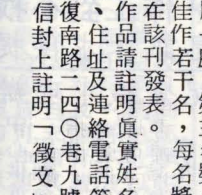 佳作若干名，每名獎
在該刊發表。
作品請註明眞實姓名
、住址及連絡電話等
復南路二四〇巷九號
信封上註明「徵文